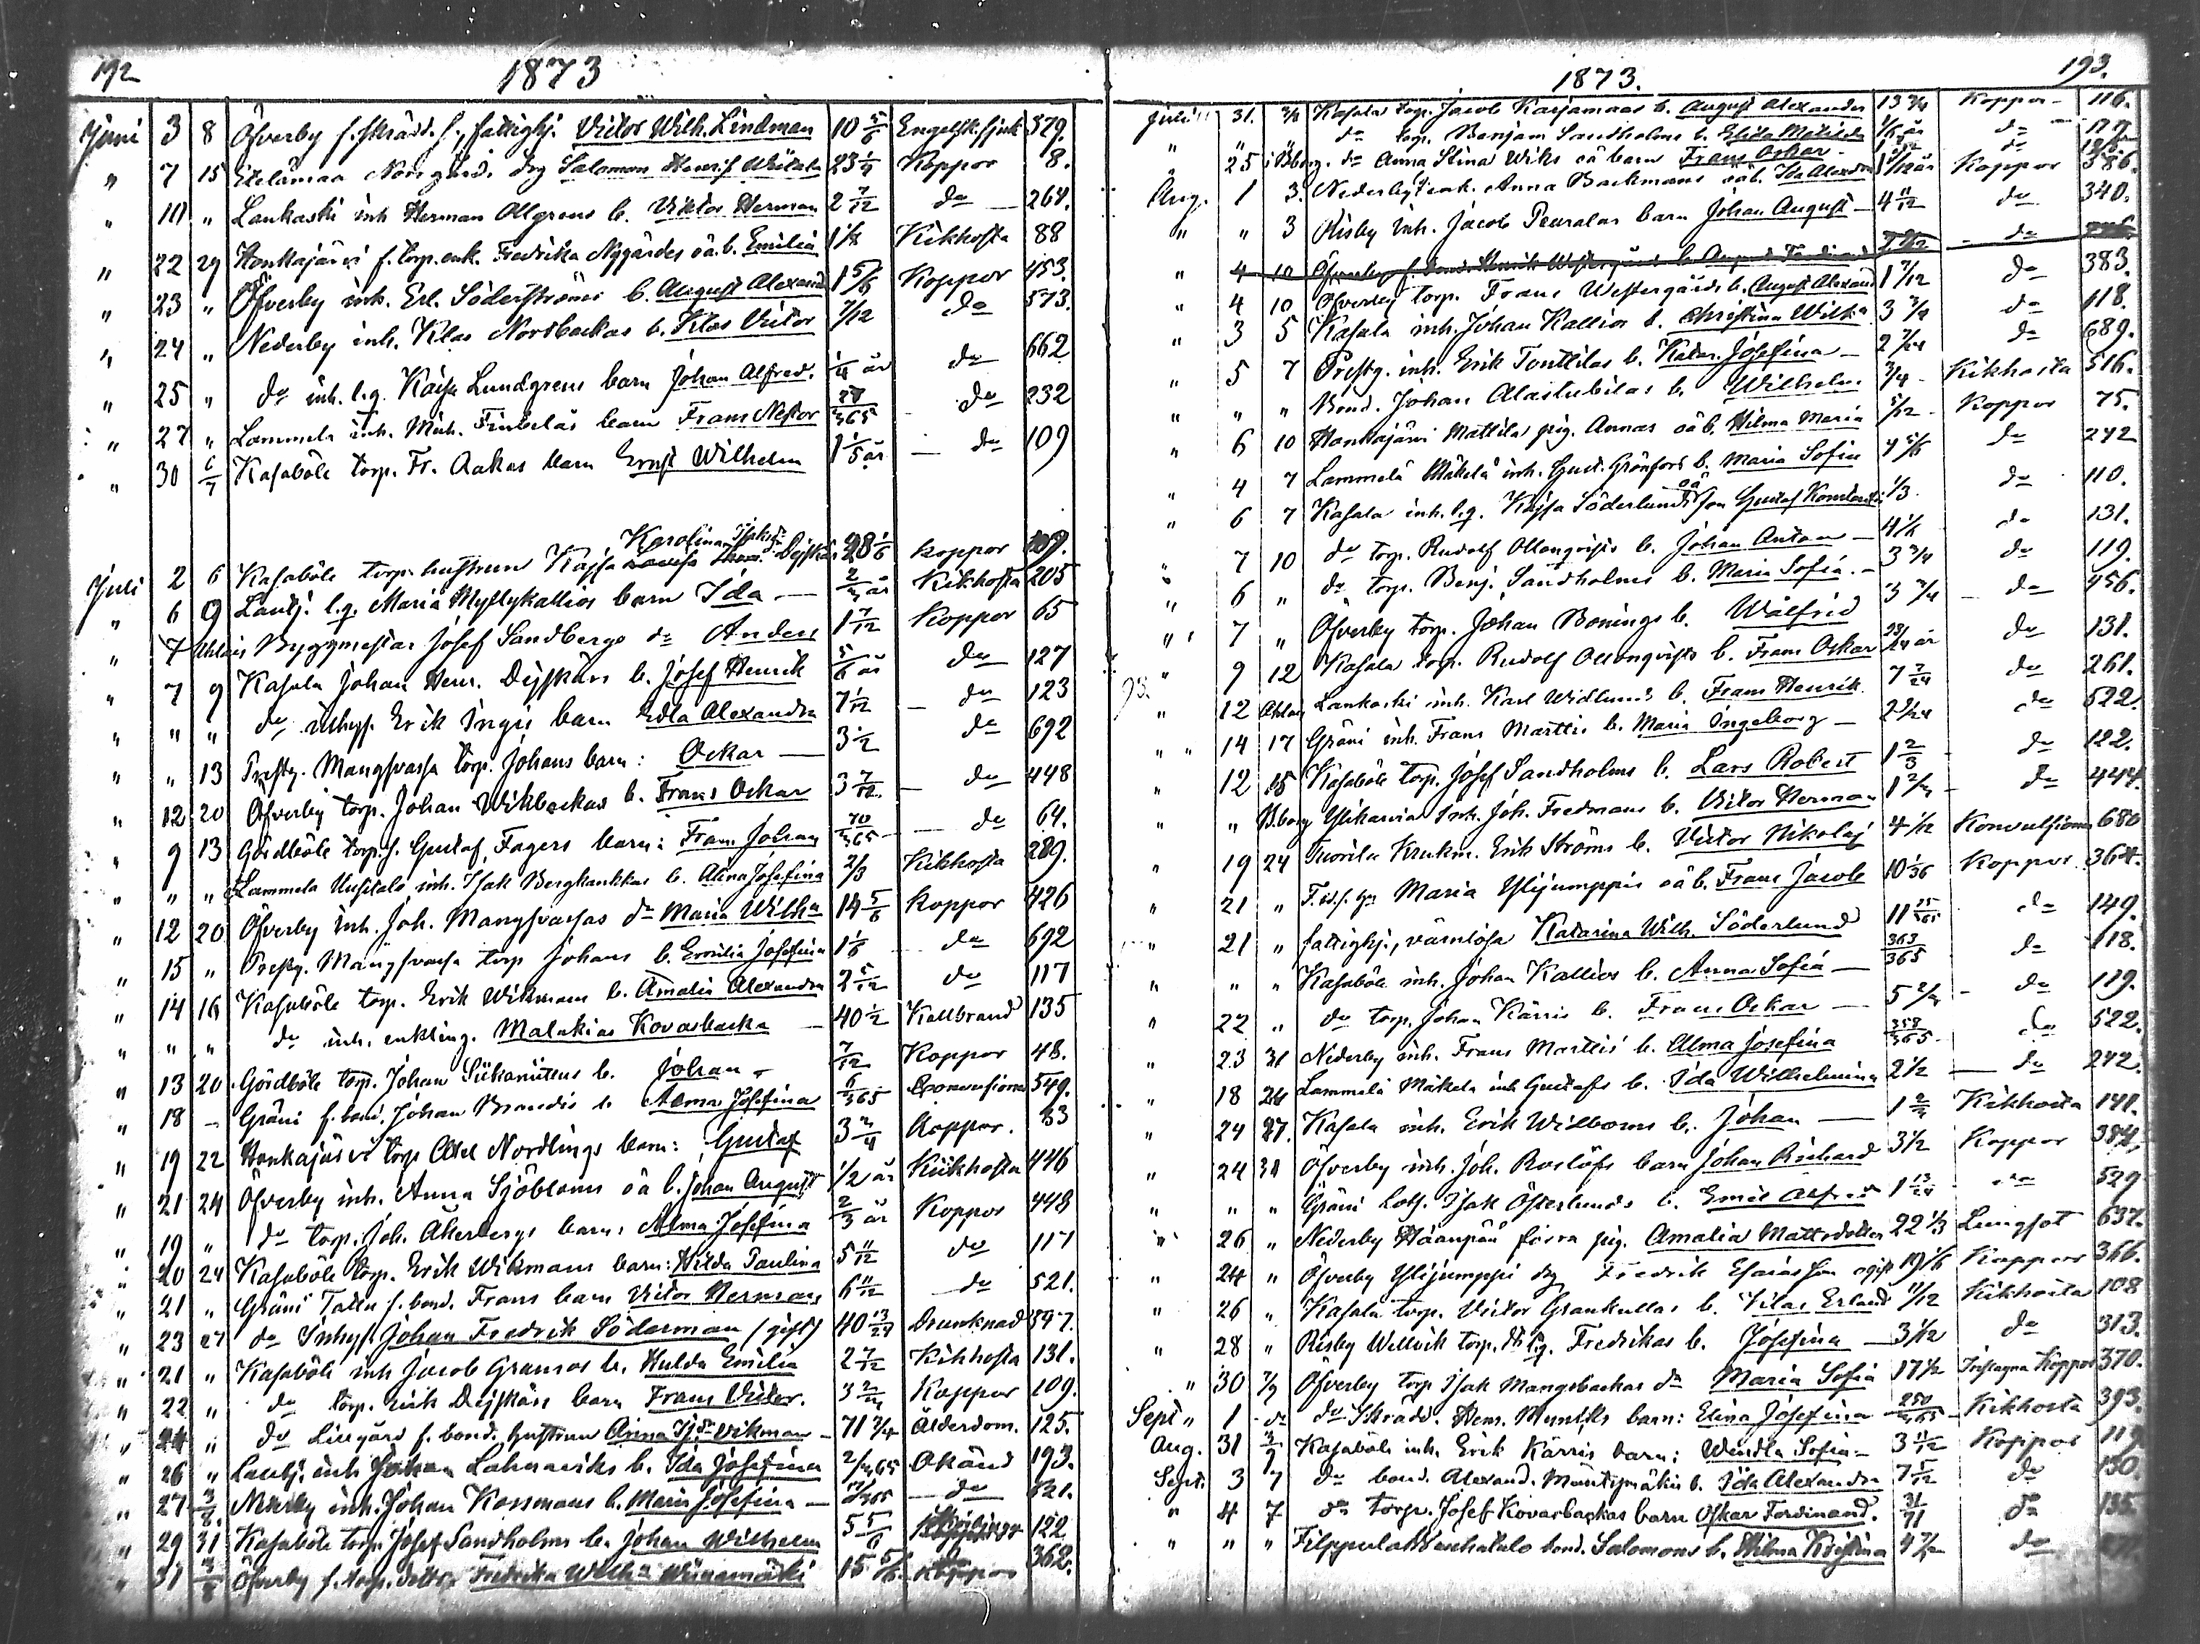 192
1873
Juni 3 8 Öfverby f. skrädd. s., fattighj. Victor Wilh. Lindman 10 5/6 Engelsk sjuk 379.
" 7 15 Etelämaa Norrgård. drg Salomon Henrik 23 1/4 Koppor 8.
" 10 " Lankoski inh Herman Allgrens b. Viktor Herman 2 7/12 do 264.
" 22 29 Honkajärvi f. torp. enk. Fredrika Nygårdes oä. b. Emilia 1 1/8 Kikhosta 88
" 23 " Öfverby inh. Erl. Söderströms b. August Alexand 1 5/6 Koppor 453.
" 24 " Nederby inh. Klas Nordbackas b. Klas Victor 7/12 do 573.
" 25 " do inh. l.q. Kaisa Lundgrens barn Johan Alfred. 1/4 år do 662
" 27 " Lammela inh. Mich. barn Frans Nestor 27/365 do 232
" 30 6/7 Kasaböle torp. Fr. Aakas barn Ernst Wilhelm 1 1/5 år do 109
Juli 2 6 Kasaböle torp. hustrun Kajsa Karolina Isaksdr 28 1/6 koppor 109.
" 6 9 Lautj. l.q. Maria Myllykallios barn Ida 2/3 år Kikhosta 205
" 7 Byggmästar Josef Sandbergs do Anders 1 7/12 Koppor 65
" 7 9 Kasala Johan Henr. Dejskärs b. Josef Henrik 5/6 år do 127
" " " do inhys. Erik Ingis barn Edla Alexandra 7 1/12 do 123
" " 13 Prestg. Mangsvassa torp. Johans barn: Oskar 3 1/2 do 692
" 12 20 Öfverby torp. Johan Wikbackas b. Frans Oskar 3 7/12 do 448
" 9 13 Gördböle torp. s. Gustaf Fagers barn: Frans Johan 70/365 do 64.
" " " Lammela Uusitalo inh. Isak Bergkankkas b. Alina Josefina 2/3 Kikhosta 289.
" 12 20 Öfverby inh. Joh. Mangsvassas do Maria Wilh:a 14 5/6 Koppor 426
" 15 " Prestg. Mangsvassa torp Johans b. Emilia Josefina 1 1/6 do 692
" 14 16 Kasaböle torp. Erik Wikmans b. Amalia Alexandra 2 5/12 do 117
" " " do inh. enkling. Malakias Kovasbacka 40 1/2 Kallbrand 135
" 13 20 Gördböle torp. Johan b. Johan 7/12 Koppor 48.
" 18 Gräni f. bond. Johan Brandis b. Alma Josefina 6/365 konvulsioner 549.
" 19 22 Honkajärvi torp Axel Nordlings barn: Gustaf 3 3/4 Koppor. 83
" 21 24 Öfverby inh. Anna Sjöbloms oä b. Johan August 1/2 år Kikhosta 446
" 19 " do torp. Joh. Åkerbergs barn: Alma Josefina 2/3 år Koppor 448
" 20 24 Kasaböle torp. Erik Wikmans barn: Hilda Paulina 5 11/12 do 117
" 21 " Gräni Tallu f. bond. Frans barn Victor Herman 6 11/12 do 521.
" 23 27 do Inhys. Johan Fredrik Söderman (gift) 40 13/24 Drunknad 547.
" 21 " Kasaböle inh Jacob Granros b. Hulda Emilia 2 7/12 Kikhosta 131.
" 22 " do torp. Erik Dejskärs barn Frans Victor. 3 2/3 Koppor 109.
" 24 " do Lillgård f. bond. hustrun Anna Isdr Wikman 71 3/4 Ålderdom. 125.
" 26 " Lautj. inh Johan b. Ida Josefina Okänd 193.
" 27 3/8 Nederby inh. Johan Kossmans b. Maria Josefina do 621.
" 29 31 Kasaböle torp. Josef Sandholms b. Johan Wilhelm 5 5/6 122
" 31 3/8 Öfverby f. torp. dottr. Fredrika Wilh:a 15 5/6 Koppor 362.
193.
1873.
Juli 31. 3/8 Kasala torp. Jacob Karjamaas b. August Alexander 13 3/4 Koppor 116.
" " " do torp. Benjam Sandholms b. Elida Matilda do
" 25 i Bborg. do Anna Stina Wiks oä barn Frans Oskar do
Aug. 1 3 Nederby enk. Anna Backmans oä b. Ida Alexandra Koppor 586.
" " 3 Risby inh. Jacob Peuralas barn Johan August 4 11/12 do 340.
" 4 10 do
" 4 10 Öfverby torp. Frans Westergårds b. August Alexand 1 7/12 do 383.
" 3 5 Kasala inh. Johan Kallios b. Christina Wilh:a 3 3/4 do 118.
" 5 7 Prestg. inh. Erik Tonttilas b. Katar. Josefina 2 7/24 do 689.
" " " Bond. Johan Alastubilas b. Wilhelm 3/4 Kikhosta 516.
" 6 10 Honkajärvi Mattila pig. Annas oä b. Hilma Maria 5/12 Koppor 75.
" 4 7 Lammela Mäkelä inh. Gust. Grönfors b. Maria Sofia 4 5/6 do 242
" 6 7 Kasala inh. l.q. Kajsa Söderlunds oä son Gustaf Konstantin 1/3 do 110.
" 7 10 do torp. Rudolf Ollonqvists b. Johan Anton 4 1/6 do 131.
" 6 " do torp. Benj. Sandholms b. Maria Sofia. 3 3/4 do 119.
" 7 " Öfverby torp. Johan Bonings b. Walfrid 3 3/4 do 456.
" 9 12 Kasala torp. Rudolf Ollonqvists b. Frans Oskar 23/24 år do 131.
" 12 Lankoski inh. Karl Widlunds b. Frans Henrik 7 7/24 do 261.
" 14 17 Gräni inh. Frans Marttis b. Maria Ingeborg do 522.
" 12 15 Kasaböle torp. Josef Sandholms b. Lars Robert 1 2/3 do 122.
" " B.borg Ytikarvia Inh. Joh. Fredmans b. Victor Herman 1 2/3 do 444.
" 19 24 Tuorila Krukm. Erik Ströms b. Victor Nikolaj 4 1/12 Konvulsioner 680
" 21 " Maria Ylijumppis oä b. Frans Jacob 10 1/36 Koppor 364.
" 21 " fattighj., värnlösa Katarina Wilh. Söderlund 11 25/365 do 149.
" " " Kasaböle inh. Johan Kallios b. Anna Sofia 363/365 do 118.
" 22 " do torp. Johan Kärris b. Frans Oskar 5 2/3 do 119.
" 23 31 Nederby inh. Frans Marttis b. Alma Josefina 358/365 do 522.
" 18 24 Lammela Mäkelä inh Gustafs b. Ida Wilhelmina 2 1/2 do 242.
" 24 27. Kasala inh. Erik Wilboms b. Johan 1 2/3 Kikhosta 141.
" 24 31 Öfverby inh. Joh. Roslöfs barn Johan Richard 3 1/2 Koppor 384.
" " " Gräni Lots. Isak Österlunds b. Emil Alfred 1 13/24 do 529
" 26 " Nederby Häänpää förra pig. Amalia Mattsdotter 22 1/3 Lungsot 637.
" 24 " Öfverby Ylijumppi drg Fredrik Esaiasson ogift 19 1/6 Koppor 366.
" 26 " Kasala torp. Victor Grankullas b. Klas Erland 11/12 Kikhosta 108
" 28 " Risby Wellvik torp. Fredrikas b. Josefina 3 1/12 do 313.
" 30 7/9 Öfverby torp Isak Mangsbackas do Maria Sofia 17 1/2 Koppor 370.
Sept " 1 do do Skrädd. Hem. barn: Elina Josefina 250/365 Kikhosta 393.
Aug. 31 3/9 Kasaböle inh. Erik Kärris barn: Wendla Sofia 3 11/12 Koppor 119
Sept. 3 7 do bond. Alexand. b. Ida Alexandra 7 5/12 do 130.
" 4 7 do torpr. Josef Kovasbackas barn Oskar Ferdinand. do 135
" " " Filppula bond. Salomons b. Hilma Kristina do